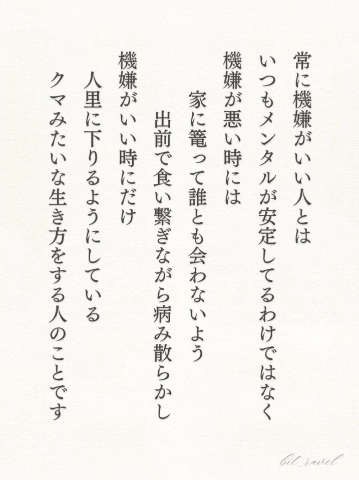 常に機嫌がいい人とは
いつもメンタルが安定してるわけではなく
機嫌が悪い時には
家に篭って誰とも会わないよう
出前で食い繋ぎながら病み散らかし
機嫌がいい時にだけ
人里に下りるようにしている
クマみたいな生き方をする人のことです